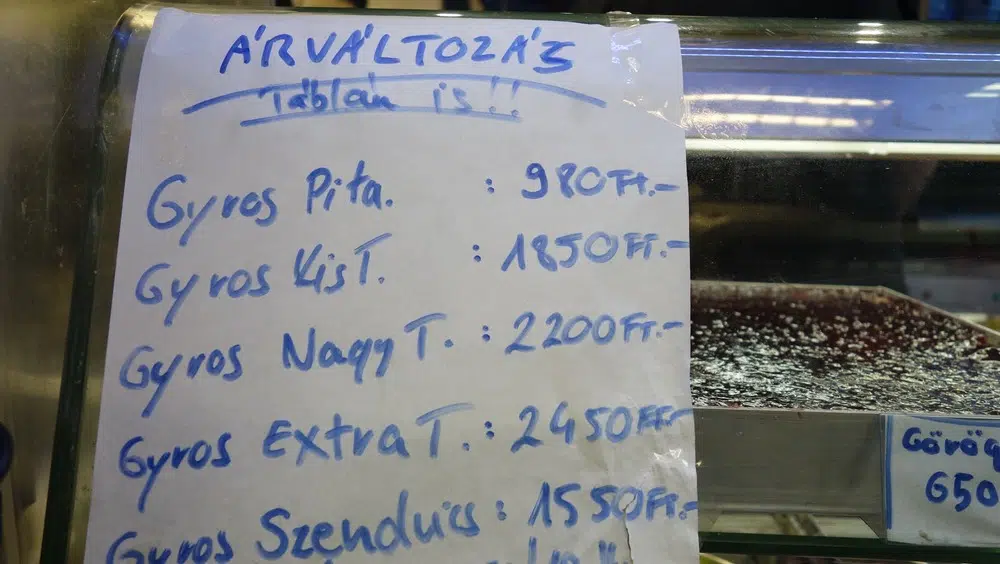 ÁRVÁLTOZÁS
Táblán is!!
Gyros Pita. : 980 Ft.-
Gyros Kis T. : 1850 Ft.-
Gyros Nagy T. : 2200 Ft.-
Gyros Extra T. : 2450 Ft-
Gyros Szendvics : 1550 Ft.-
Görög
650